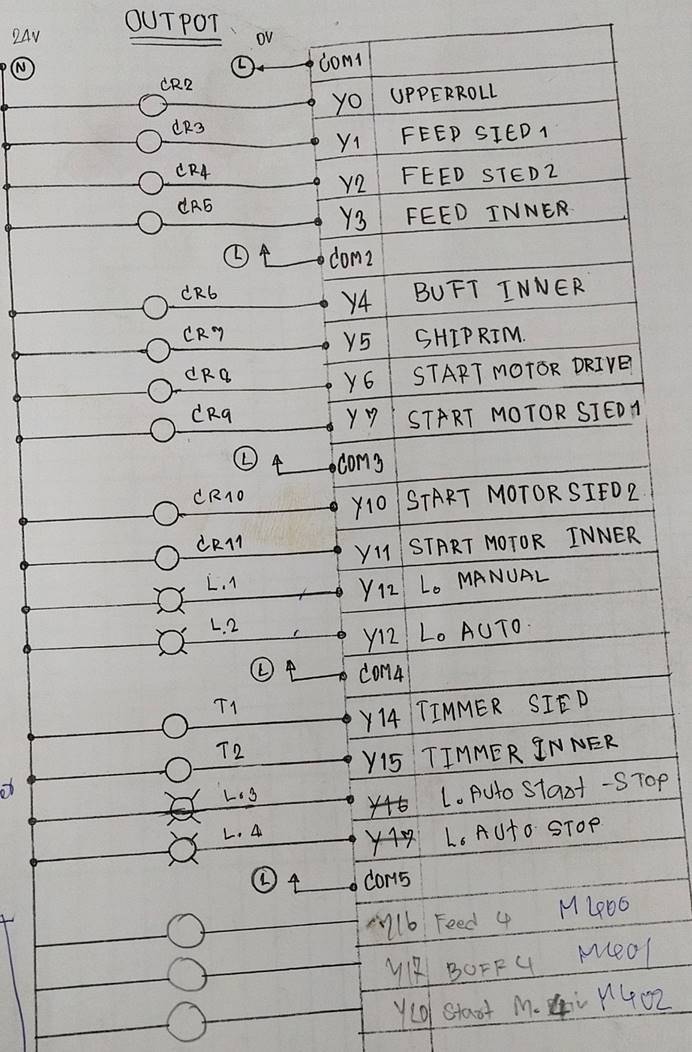 OUTPOT
24V
0V
N L COM1
CR2 Y0 UPPERROLL
CR3 Y1 FEED SIED 1
CR4 Y2 FEED SIED2
CR5 Y3 FEED INNER
L COM2
CR6 Y4 BUFT INNER
CR7 Y5 SHIPRIM.
CR8 Y6 START MOTOR DRIVE
CR9 Y7 START MOTOR SIED1
L COM3
CR10 Y10 START MOTOR SIED2
CR11 Y11 START MOTOR INNER
L.1 Y12 Lo MANUAL
L.2 Y12 Lo AUTO.
L COM4
T1 Y14 TIMMER SIED
T2 Y15 TIMMER INNER
L.3 Y16 L. Auto Start -STOP
L.4 Y17 Lo AUtO STOP
L COM5
Y16 Feed 4 M400
Y17 BUFF 4 M401
Y20 Start M. M402